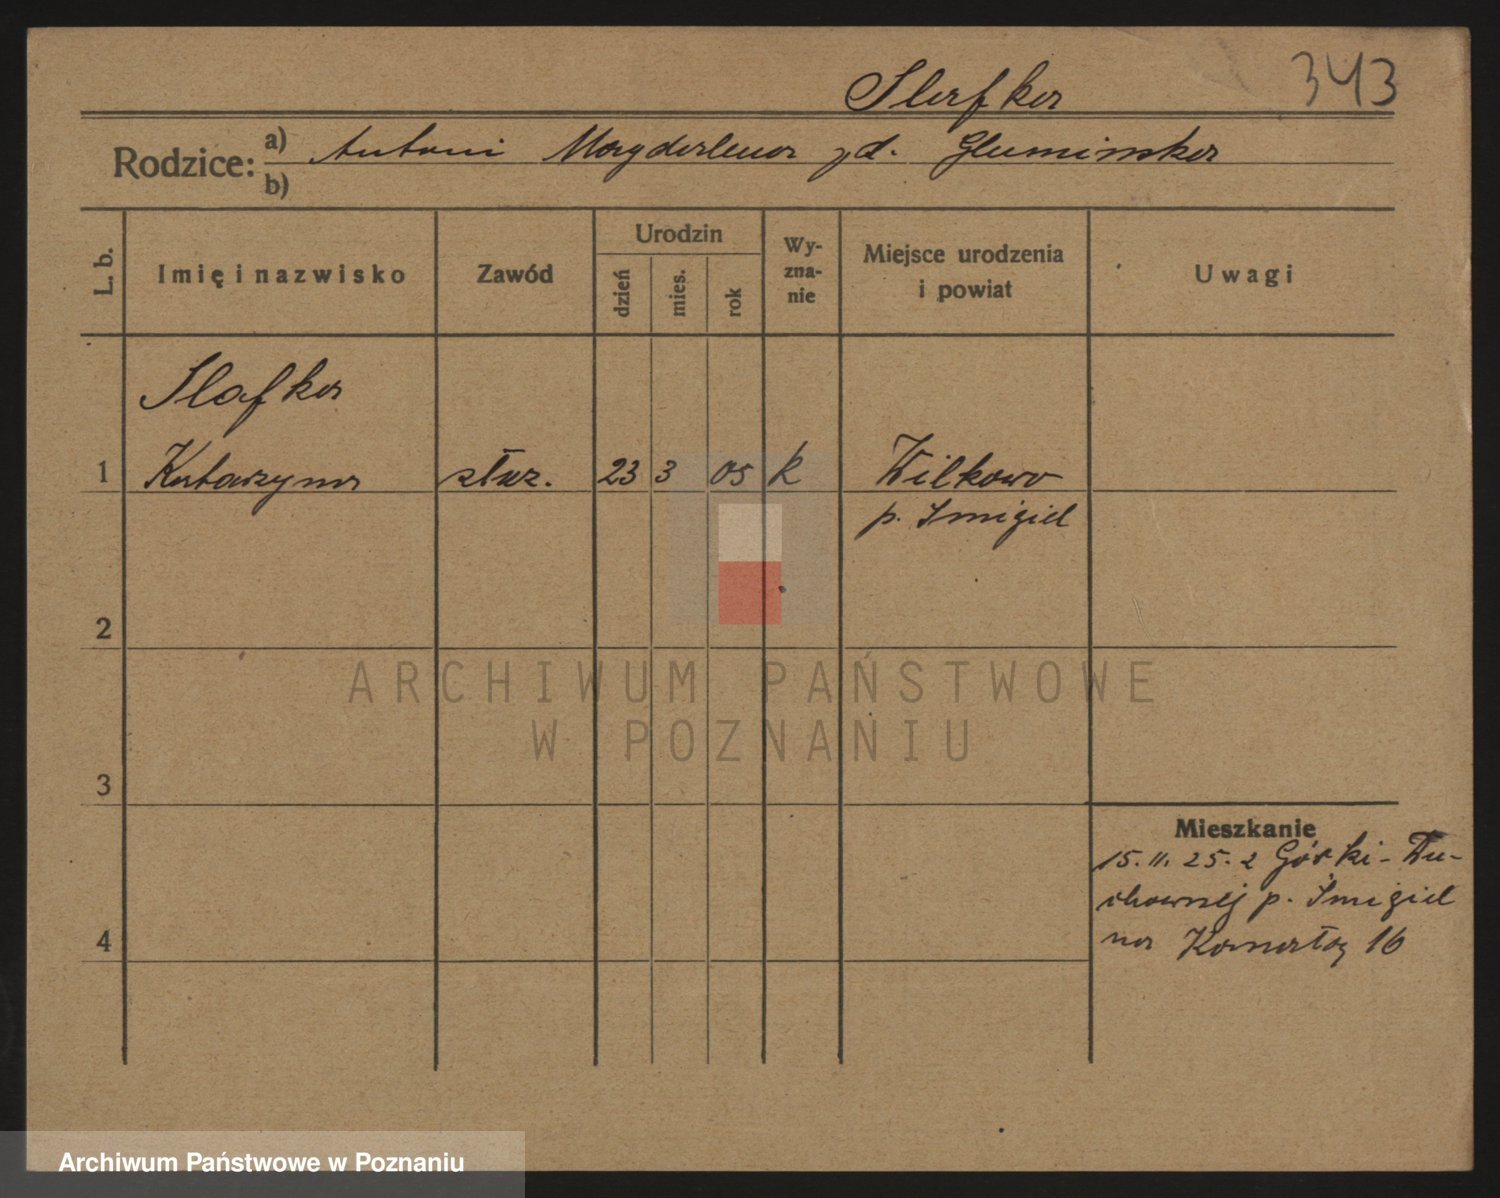 Slafka
343
Rodzice: a) Antoni Magdalena zd. Glumińska
b)
L. b.
Imię i nazwisko
Zawód
Urodzin
dzień
mies.
rok
Wy-
zna-
nie
Miejsce urodzenia
i powiat
Uwagi
Slafka
1 Katarzyna służ. 23 3 05 k Wilkowo
p. Śmigiel
2
ARCHIWUM PAŃSTWOWE
W POZNANIU
3
Mieszkanie
15.11.25. z Górki-Du-
chownej p. Śmigiel
na Kanałoą 16
4
Archiwum Państwowe w Poznaniu